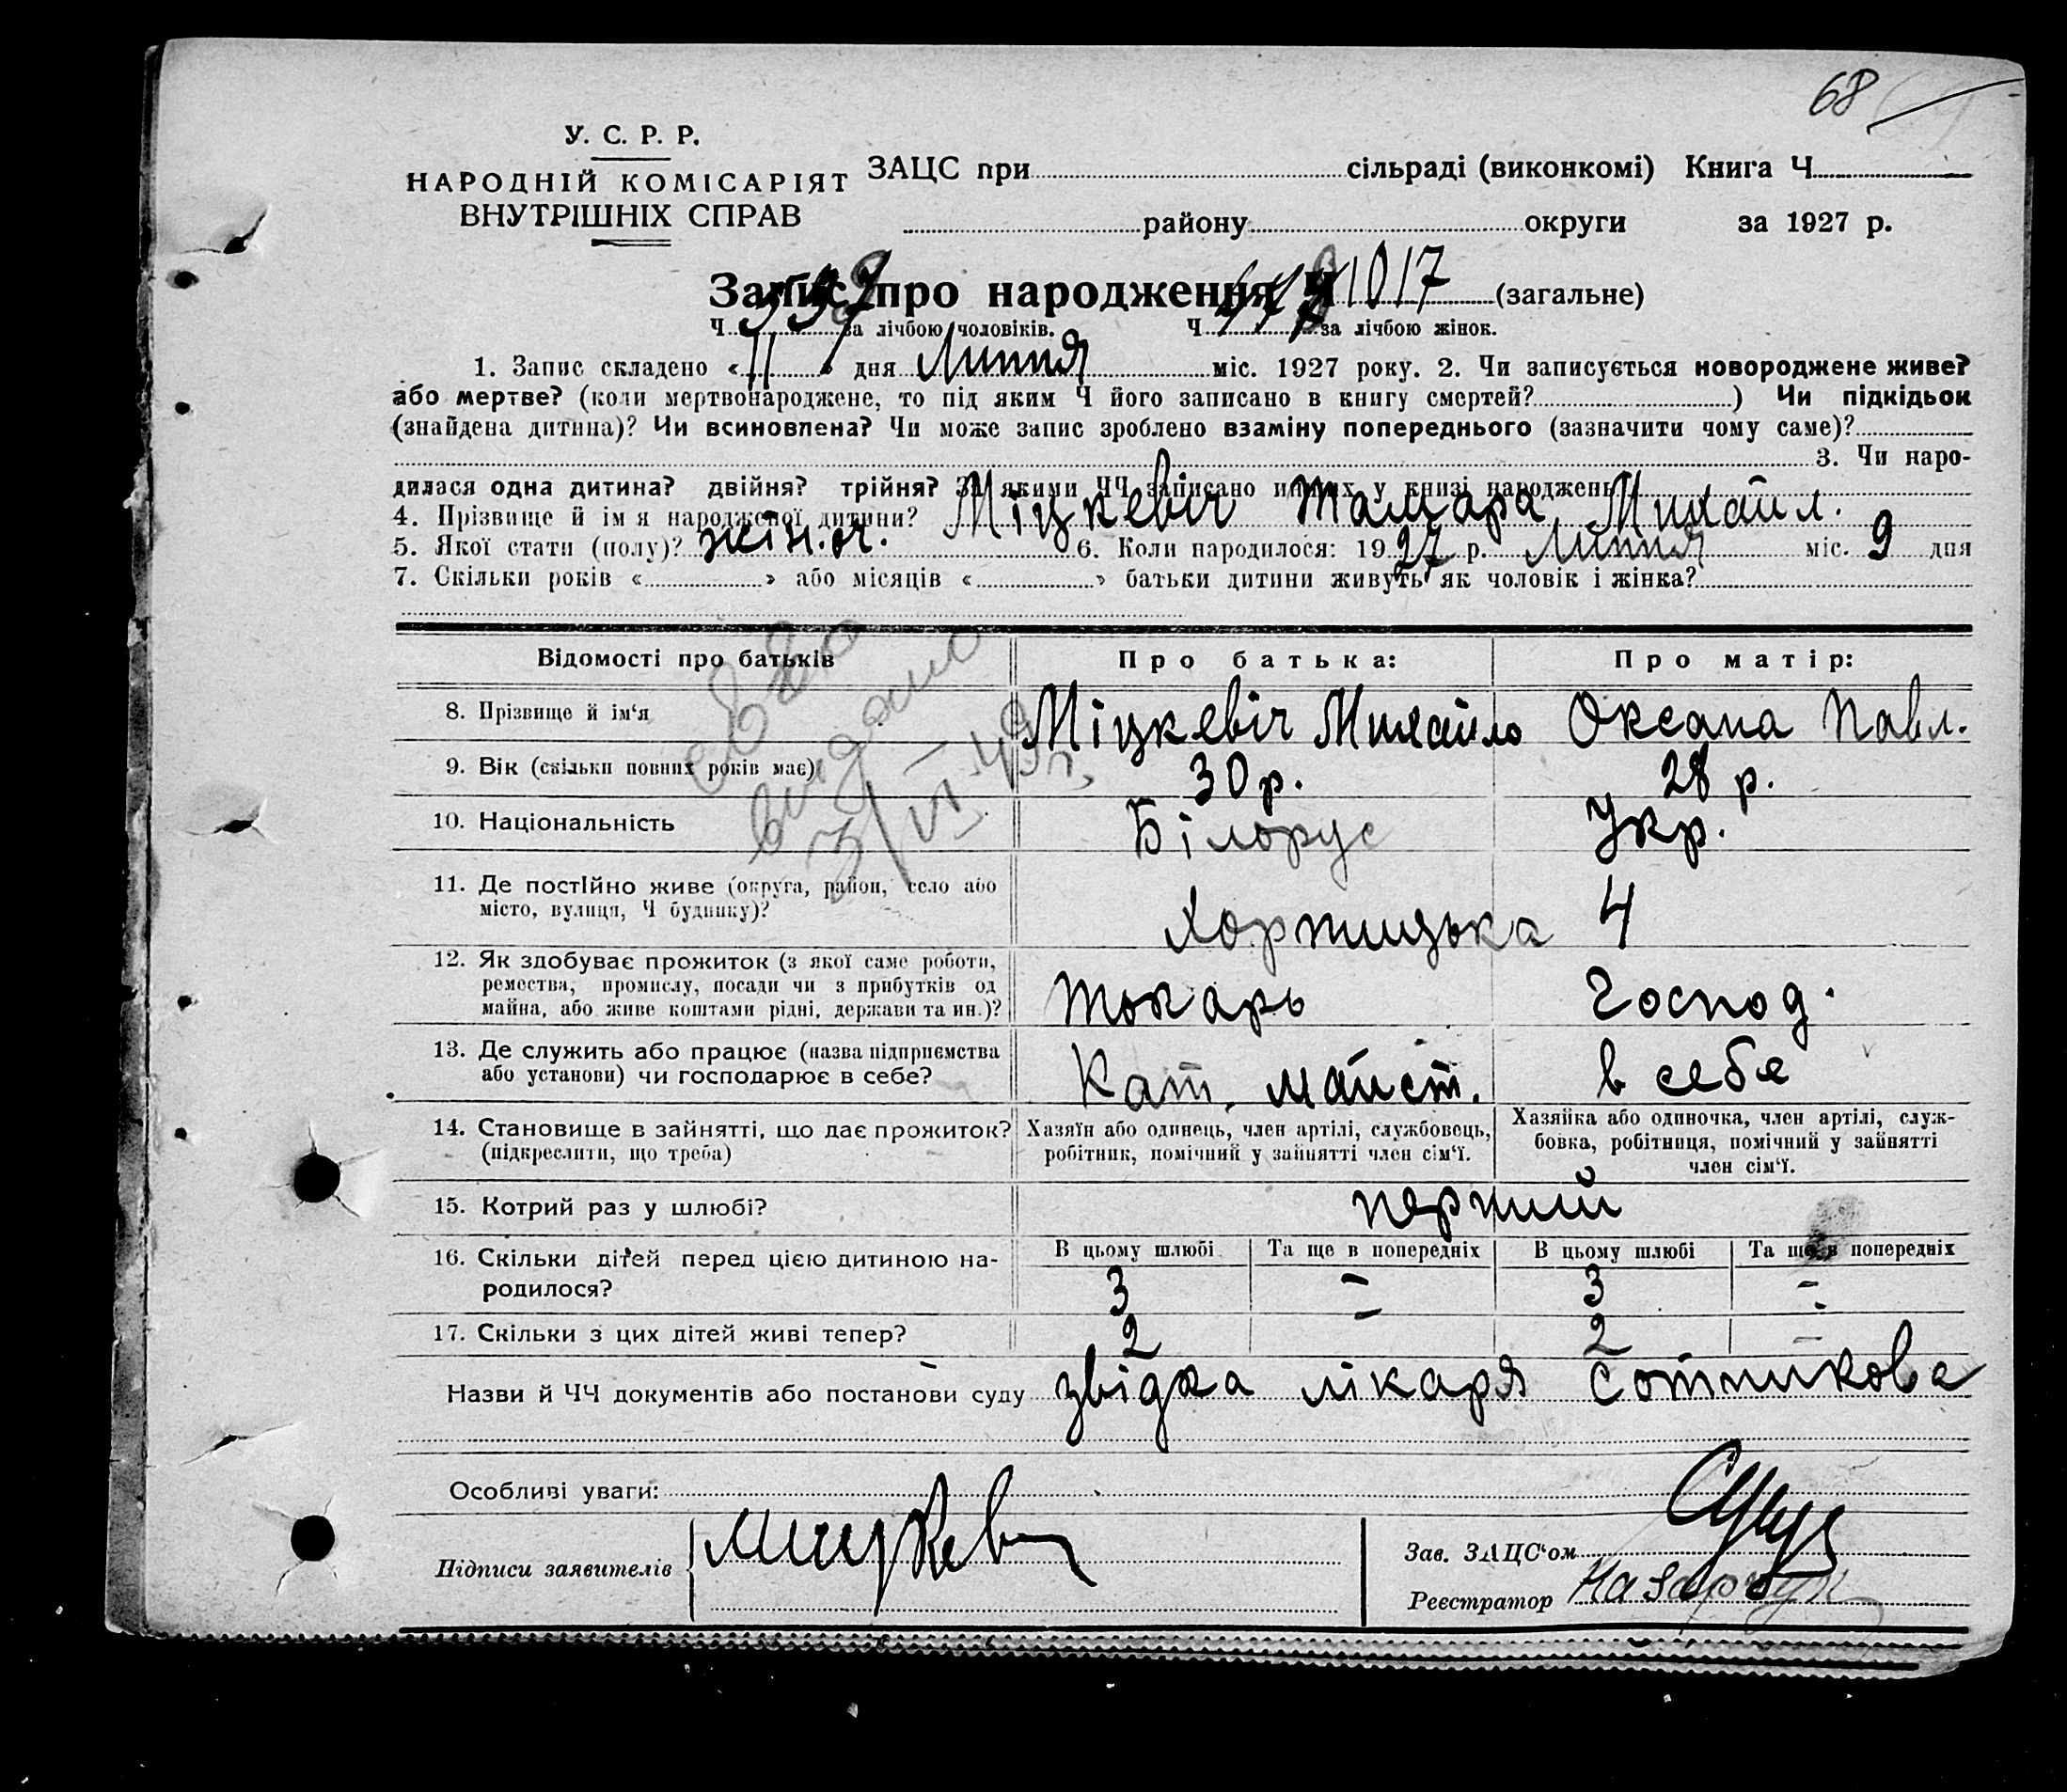 68
У. С. Р. Р.
НАРОДНІЙ КОМІСАРІЯТ
ВНУТРІШНІХ СПРАВ
ЗАЦС при сільраді (виконкомі) Книга Ч
району округи за 1927 р.
Запис про народження Ч 1017 (загальне)
Ч за лічбою чоловіків. Ч за лічбою жінок.
1. Запис складено « 11 » дня Липня міс. 1927 року. 2. Чи записується новороджене живе?
або мертве? (коли мертвонароджене, то під яким Ч його записано в книгу смертей? ) Чи підкідьок
(знайдена дитина)? Чи всиновлена? Чи може запис зроблено взаміну попереднього (зазначити чому саме)?
3. Чи наро-
дилася одна дитина? двійня? трійня? За якими ЧЧ записано инших у книзі народжень
4. Прізвище й ім я народженої дитини? Міцкевіч Тамара Михайл.
5. Якої стати (полу)? жін. 6. Коли народилося: 1927 р. Липня міс. 9 дня
7. Скільки років « » або місяців « » батьки дитини живуть як чоловік і жінка?
Відомості про батьків Про батька: Про матір:
8. Прізвище й ім‘я Міцкевіч Михайло Оксана Павл.
9. Вік (скільки повних років має) 30 р. 28 р.
10. Національність Білорус Укр.
видано
3/VI-49 г.
11. Де постійно живе (округа, район, село або
місто, вулиця, Ч будинку)? Хортицька 4
12. Як здобуває прожиток (з якої саме роботи,
ремества, промислу, посади чи з прибутків од
майна, або живе коштами рідні, держави та ин.)? Токарь Господ.
13. Де служить або працює (назва підприємства
або установи) чи господарює в себе? Кат. майст. в себе
14. Становище в зайнятті, що дає прожиток?
(підкреслити, що треба)
Хазяїн або одинець, член артілі, службовець,
робітник, помічний у зайнятті член сім‘ї.
Хазяйка або одиночка, член артілі, служ-
бовка, робітниця, помічний у зайнятті
член сім‘ї.
15. Котрий раз у шлюбі? перший
16. Скільки дітей перед цією дитиною на-
родилося?
В цьому шлюбі Та ще в попередніх В цьому шлюбі Та ще в попередніх
3 – 3 –
17. Скільки з цих дітей живі тепер? 2 – 2 –
Назви й ЧЧ документів або постанови суду звідка лікаря Сотникова
Особливі уваги:
Підписи заявителів Мицкев
Зав. ЗАЦС‘ом
Реєстратор Назарчук